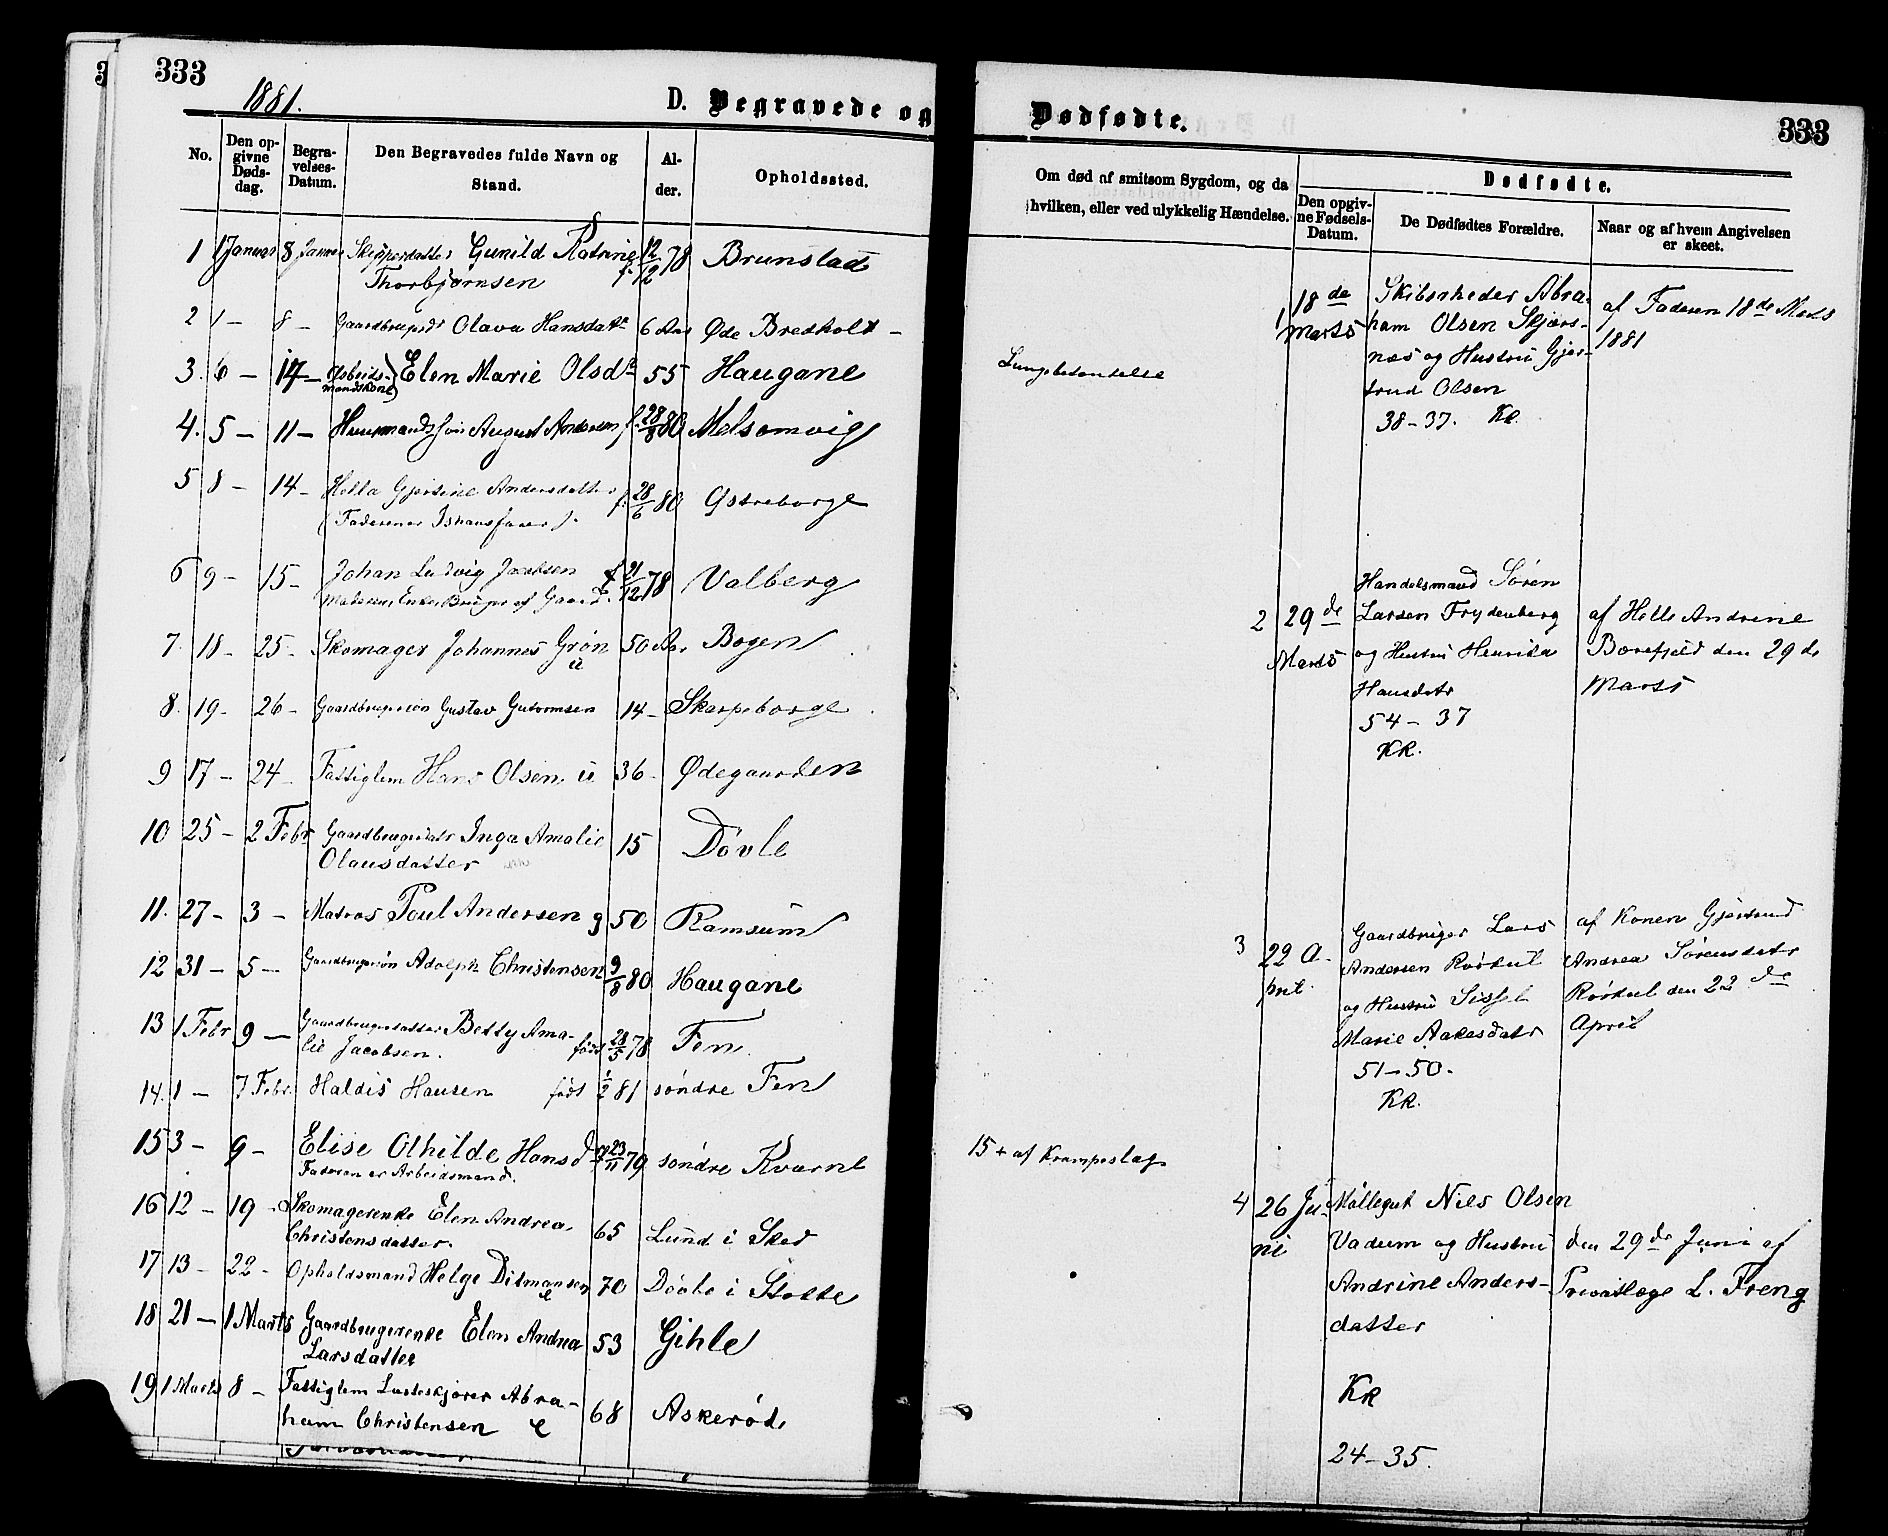 333
1881.
D. Begravede og
No.
Den op-
givne
Døds-
dag.
Begra-
velses-
Datum.
Den Begravedes fulde Navn og
Stand.
Al-
der.
Opholdssted.
1 1 Januar 8 Januar Skipperdatter Gunild Katrine f. 12/12 78 Brunstad
Thorbjørnsen
2 1 — 8 — Gaardbrugerdtr Olava Hansdatr 6 Aar Øde Bredholt —
3. 6 — 14 — Arbeids- Elen Marie Olsdr 55 Haugane
mandskone
4. 5 — 11 — Huusmandssøn August Andersen f. 28/8 80 Melsomvig
5 8 — 14 — Hella Gjertine Andersdatter f. 28/6 80 Østreborge
(Faderen er Ishavsfarer).
6 9 — 15 — Johan Ludvig Jacobsen f 21/12 78 Valberg
Moderen, Enke, Bruger af Gaard.
7. 18 — 25 — Skomager Johannes Grøn 50 Aar Bogen
u
8. 19 — 26 — Gaardbrugersøn Gustav Guttormsen 14 — Skarpeborge
9 17 — 24 — Fattiglem Hans Olsen u 36 — Ødegaarden
10 25 — 2 Febr Gaardbrugerdatr Inga Amalie 15 Døvle
Olausdatter
11. 27 — 3 — Matros Poul Andersen g 50 Ramsum
12 31 — 5 — Gaardbrugersøn Adolph Christensen 9/8 80 Haugane
13 1 Febr 9 — Gaardbrugerdatter Betty Ama- født 28/5 78 Fen
lie Jacobsen.
14. 1 — 7 Febr. Haldis Hansen født 1/2 81 søndre Fen
15 3 — 9 — Elise Othilde Hansd f 23/11 79 søndre Kvarne
Faderen er Arbeidsmand.
16 12 — 19 — Skomagerenke Elen Andrea 65 Lund i Sked
Christensdatter.
17 13 — 22 — Opholdsmand Helge Ditmansen 70 Døvle i Stokke
e
18 21 — 1 Marts Gaardbrugerenke Elen Andrea 53 Gihle
Larsdatter
19 1 Marts 8 — Fattiglem Abra- 68 Askerød
ham Christensen e
Dødfødte.
333
Om død af smitsom Sygdom, og da
hvilken, eller ved ulykkelig Hændelse.
Dødfødte.
Den opgiv-
ne Fødsels-
Datum.
De Dødfødtes Forældre.
Naar og af hvem Angivelsen
er skeet.
Lungebetændelse
15 + af Krampeslag
1, 18de Skibsrheder Abra- af Faderen 18de Marts
Marts ham Olsen Skjærs- 1881
næs og Hustru Gjer-
trud Olsen
38 - 37. KR
2 29de Handelsmand Søren
Marts Larsen Frydenberg af Helle Andrine
og Hustru Henrika den 29de
Hansdatr Marts
54 - 37
KR.
3 22 A- Gaardbruger Lars af Konen Gjertrud
pril Andersen Rørkul Andrea Sørensdatr
og Hustru Sissel Rørkul den 22de
Marie Aakesdatr April
51 - 50.
KR.
4 26 Ju- Møllegut Nils Olsen
ni Vadum og Hustru den 29de Juni af
Andrine Anders- Privatlæge L. Freng
datter
KR
24 - 35.